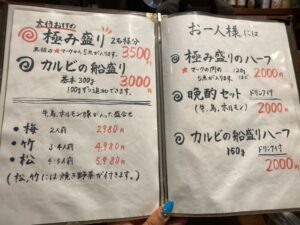 大待おすすめ
極み盛り 2名様分
3500円
カルビの船盛り
基本 300g
3000円
100gずつ追加できます。
牛、鳥、ホルモン様が入った盛合せ
・梅 2人前 2980円
・竹 3〜4人前 4980円
・松 4〜5人前 5980円
(松、竹には焼き野菜が付きます。)
お一人様には
極み盛りのハーフ
★マークの肉 120g
5点が入ります。
2000円
晩酌セット ドリンク1付
(牛、鳥、ホルモン)
2000円
カルビの船盛りハーフ
150g ドリンク1付
2000円